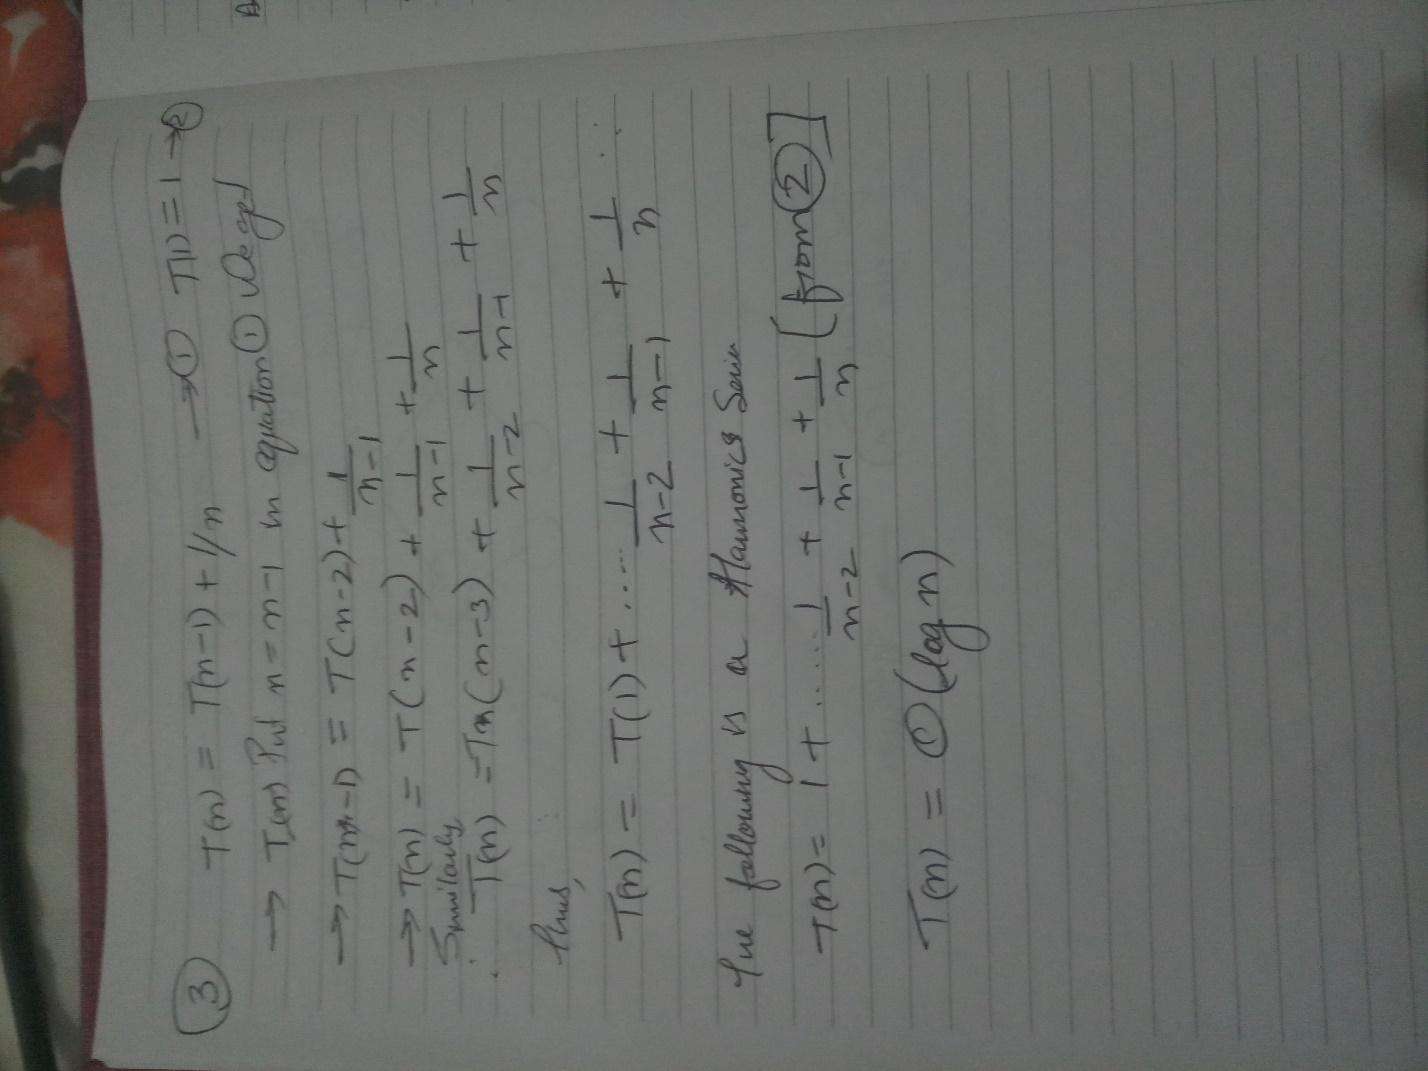 ③ T(n) = T(n-1) + 1/n → ① T(1) = 1 → ②
→ T(n) Put n = n-1 in equation ① We get
→ T(n-1) = T(n-2) + 1/n-1
→ T(n) = T(n-2) + 1/n-1 + 1/n
Similarly
T(n) = T(n-3) + 1/n-2 + 1/n-1 + 1/n
Thus,
T(n) = T(1) + ..... 1/n-2 + 1/n-1 + 1/n ...
The following is a Harmonics Series
T(n) = 1 + ..... 1/n-2 + 1/n-1 + 1/n [from ②]
T(n) = O(log n)